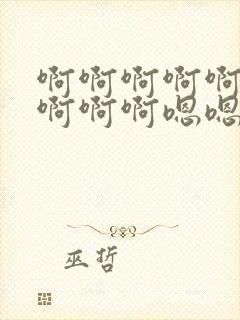 啊啊啊啊啊
啊啊啊嗯嗯
巫哲